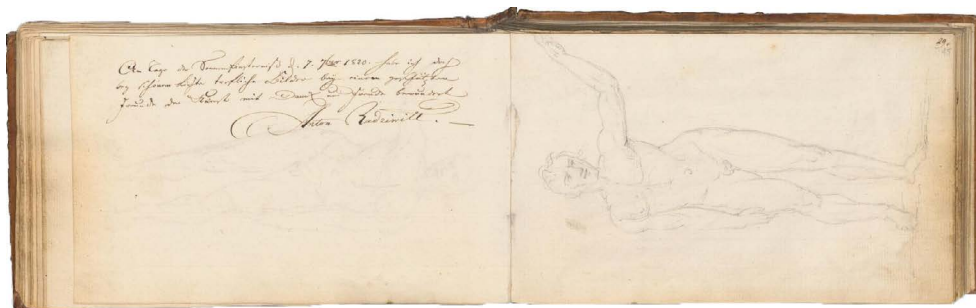 Am Tage der Sonnenfinsterniß d. 7. 7ber 1820. habe ich doch
bey schönem Lichte treffliche Bilder bey einem geschätzten
Freunde der Kunst mit Dank und Freude bewundert
Anton Radziwill.